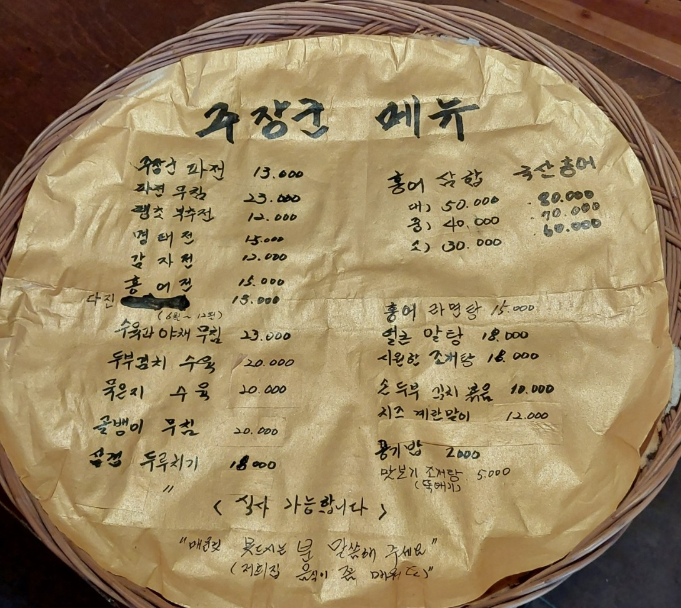 주장군 메뉴
주장군 파전 13.000
파전 무침 23.000
땡초 부추전 12.000
명태전 15.000
감자전 12.000
홍어전 15.000
다진 13.000
(6월~12월)
수육과 야채 무침 23.000
두부김치 수육 20.000
묵은지 수육 20.000
골뱅이 무침 20.000
삼겹 두루치기 18.000
"
홍어 삼합 국산홍어
대) 50.000 80.000
중) 40.000 70.000
소) 30.000 60.000
홍어 라면탕 15.000
얼큰 알탕 18.000
시원한 조개탕 18.000
손두부 김치 볶음 10.000
치즈 계란말이 12.000
공기밥 2000
맛보기 조개탕 5.000
(뚝배기)
< 식사 가능합니다 >
"매운거 못드시는 분 말씀해 주세요"
(저희집 음식이 좀 매워요)"